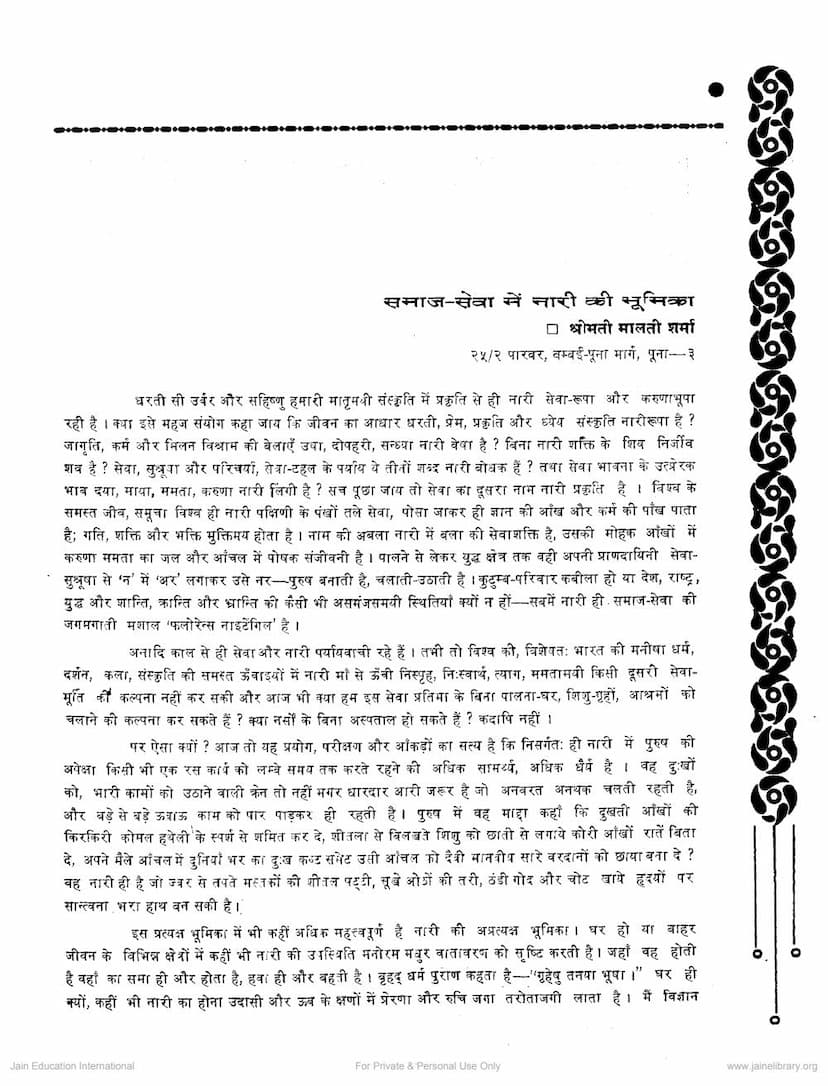 समाज-सेवा में नारी की भूमिका
□ श्रीमती मालती शर्मा
२५/२ पारवर, बम्बई-पूना मार्ग, पूना—३
धरती सी उर्वर और सहिष्णु हमारी मातृमयी संस्कृति में प्रकृति से ही नारी सेवा-रूपा और करुणाभूषा
रही है । क्या इसे महज संयोग कहा जाय कि जीवन का आधार धरती, प्रेम, प्रकृति और ध्येय संस्कृति नारीरूपा है ?
जागृति, कर्म और मिलन विश्राम की बेलाएँ उषा, दोपहरी, सन्ध्या नारी वेषा है ? बिना नारी शक्ति के शिव निर्जीव
शव है ? सेवा, सुश्रूषा और परिचर्या, सेवा-टहल के पर्याय ये तीनों शब्द नारी बोधक हैं ? तथा सेवा भावना के उत्प्रेरक
भाव दया, माया, ममता, करुणा नारी लिंगी है ? सच पूछा जाय तो सेवा का दूसरा नाम नारी प्रकृति है । विश्व के
समस्त जीव, समूचा विश्व ही नारी पक्षिणी के पंखों तले सेवा, पोसा जाकर ही ज्ञान की आंख और कर्म की पाँख पाता
है; गति, शक्ति और भक्ति मुक्तिमय होता है । नाम की अबला नारी में बला की सेवाशक्ति है, उसकी मोहक आँखों में
करुणा ममता का जल और आँचल में पोषक संजीवनी है । पालने से लेकर युद्ध क्षेत्र तक वही अपनी प्राणदायिनी सेवा-
सुश्रूषा से ‘न’ में ‘अर’ लगाकर उसे नर—पुरुष बनाती है, चलाती-उठाती है । कुटुम्ब-परिवार कबीला हो या देश, राष्ट्र,
युद्ध और शान्ति, क्रान्ति और भ्रान्ति की कैसी भी असमंजसमयी स्थितियाँ क्यों न हों—सबमें नारी ही समाज-सेवा की
जगमगाती मशाल ‘फ्लोरेन्स नाइटेंगिल’ है ।
अनादि काल से ही सेवा और नारी पर्यायवाची रहे हैं । तभी तो विश्व की, विशेषतः भारत की मनीषा धर्म,
दर्शन, कला, संस्कृति की समस्त ऊँचाइयों में नारी माँ से ऊँची निस्पृह, निःस्वार्थ, त्याग, ममतामयी किसी दूसरी सेवा-
मूर्ति की कल्पना नहीं कर सकी और आज भी क्या हम इस सेवा प्रतिमा के बिना पालना-घर, शिशु-गृहों, आश्रमों को
चलाने की कल्पना कर सकते हैं ? क्या नर्सों के बिना अस्पताल हो सकते हैं ? कदापि नहीं ।
पर ऐसा क्यों ? आज तो यह प्रयोग, परीक्षण और आँकड़ों का सत्य है कि निसर्गतः ही नारी में पुरुष की
अपेक्षा किसी भी एक रस कार्य को लम्बे समय तक करते रहने की अधिक सामर्थ्य, अधिक धैर्य है । वह दुःखों
को, भारी कामों को उठाने वाली क्रेन तो नहीं मगर धारदार आरी जरूर है जो अनवरत अनथक चलती रहती है,
और बड़े से बड़े ऊबाऊ काम को पार पाड़कर ही रहती है । पुरुष में वह माद्दा कहाँ कि दुखती आँखों की
किरकिरी कोमल हथेली के स्पर्श से शमित कर दे, शीतला से बिलखते शिशु को छाती से लगाये कोरी आँखों रातें बिता
दे, अपने मैले आँचल में दुनियाँ भर का दुःख कष्ट समेट उसी आँचल को दैवी मानवीय सारे वरदानों की छाया बना दे ?
वह नारी ही है जो ज्वर से तपते मस्तकों की शीतल पट्टी, सूखे ओठों की तरी, ठंडी गोद और चोट खाये हृदयों पर
सान्त्वना भरा हाथ बन सकी है ।
इस प्रत्यक्ष भूमिका में भी कहीं अधिक महत्वपूर्ण है नारी की अप्रत्यक्ष भूमिका । घर हो या बाहर
जीवन के विभिन्न क्षेत्रों में कहीं भी नारी की उपस्थिति मनोरम मधुर वातावरण की सृष्टि करती है । जहाँ वह होती
है वहाँ का समा ही और होता है, हवा ही और बहती है । बृहद् धर्म पुराण कहता है—“गृहेषु तनया भूषा ।” घर ही
क्यों, कहीं भी नारी का होना उदासी और ऊब के क्षणों में प्रेरणा और रुचि जगा तरोताजगी लाता है । मैं विज्ञान
Jain Education International
For Private & Personal Use Only
www.jainelibrary.org